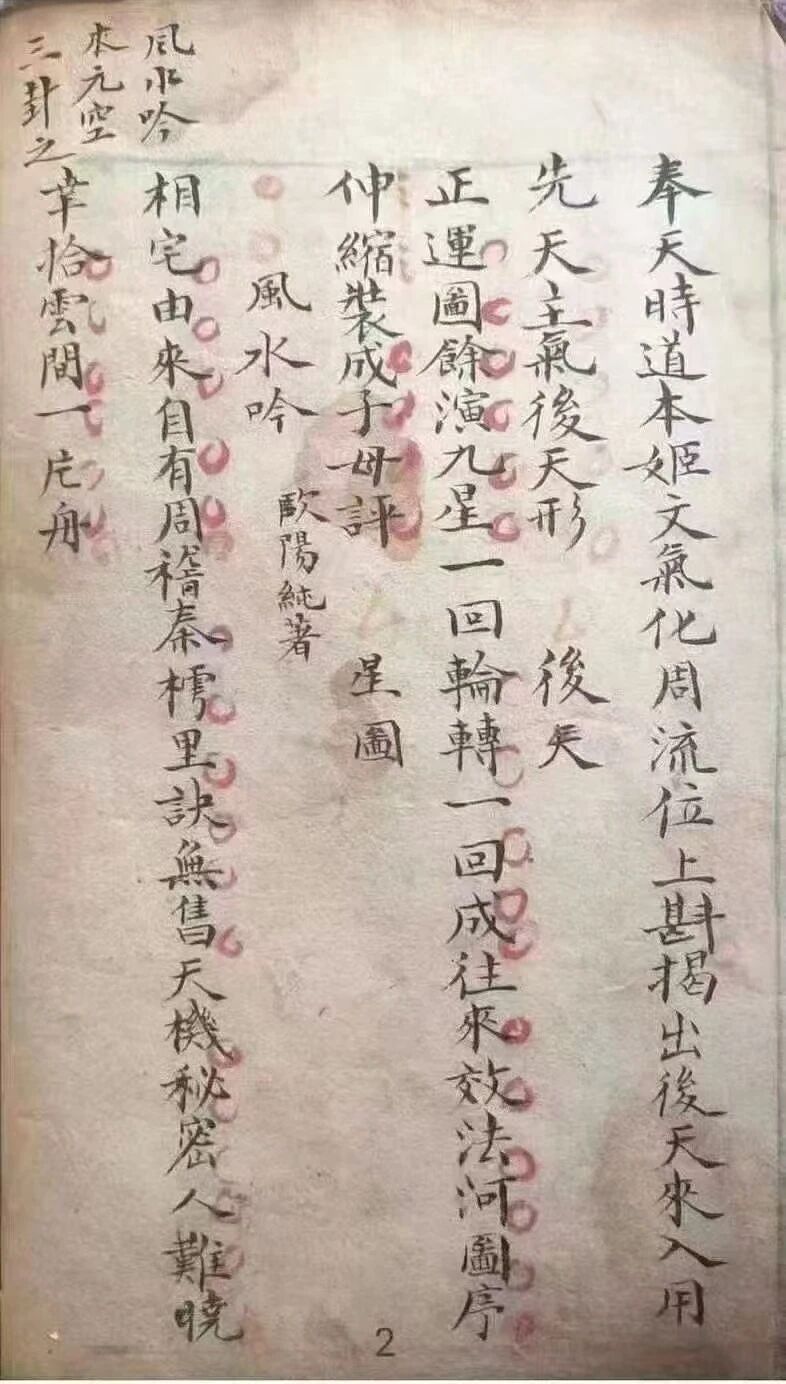 奉天時道本姬文氣化周流位上斟揭出後天來入用
先天主氣後天形　後天
正運圖餘演九星一回輪轉一回成往來效法河圖序
仲縮裝成子母評　星圖
風水吟　歐陽純著
相宅由來自有周稽秦樗里訣無售天機秘密人難曉
幸拾雲間一片舟
風水吟
本元空
三卦之
2